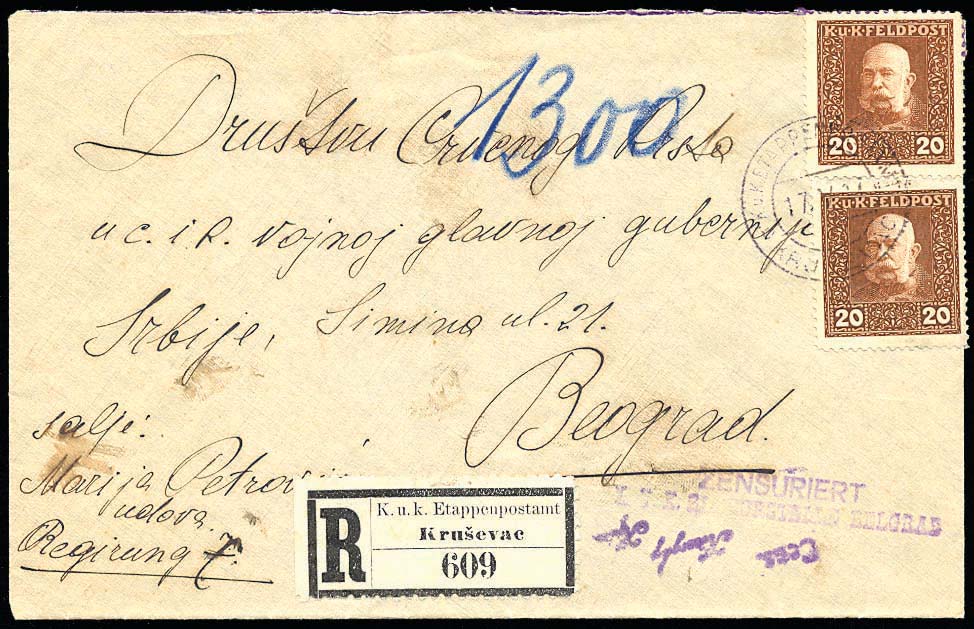 K.u.K.FELDPOST
20 20
K.u.K.FELDPOST
20 20
1300
Društvu Crvenog Krsta
u c. i k. vojnoj glavnoj guberniji
Srbije, Simina ul. 21.
Beograd.
salje:
Marija Petrović
udova
Regirung 7.
R
K. u. k. Etappenpostamt
Kruševac
609
ZENSURIERT
BELGRAD